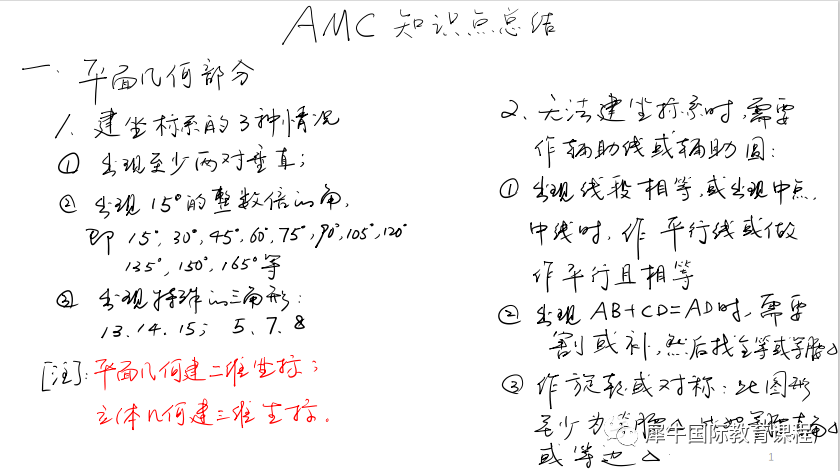 AMC 知识点总结
一、平面几何部分
1、建坐标系的3种情况
① 出现至少两对垂直;
② 出现15°的整数倍的角,
即 15°, 30°, 45°, 60°, 75°, 90°, 105°, 120°
135°, 150°, 165° 等
③ 出现特殊的三角形:
13、14、15; 5、7、8
[注]: 平面几何建二维坐标;
立体几何建三维坐标.
2、无法建坐标系时,需要
作辅助线或辅助圆:
① 出现线段相等,或出现中点,
中线时,作 平行线或做
作平行且相等
② 出现 AB+CD=AD时,需要
割或补,然后找全等或等腰△
③ 作旋转或对称:此图形
至少为等腰△
或等边△
犀牛国际教育课程
1